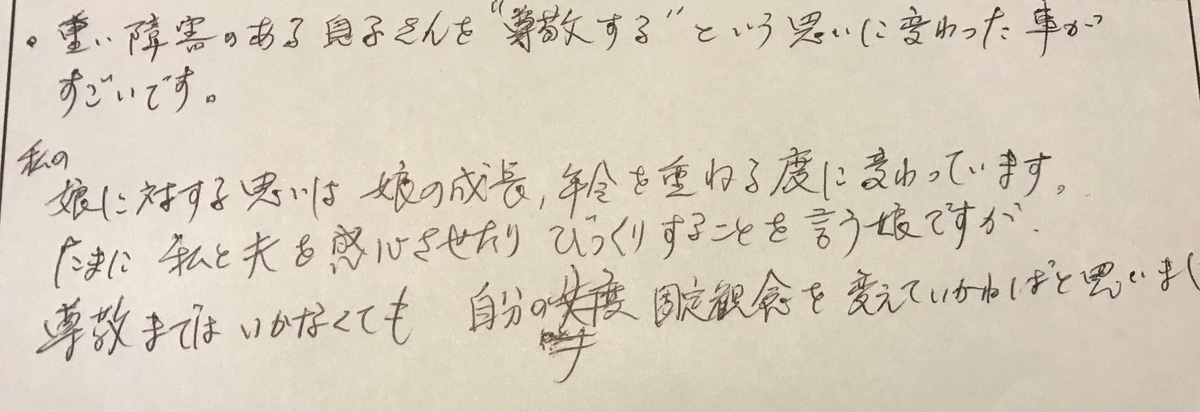 ・重い障害のある息子さんを"尊敬する"という思いに変わった事が
すごいです。
私の
娘に対する思いは娘の成長,年令を重ねる度に変わっています。
たまに私と夫を感心させたりびっくりすることを言う娘ですが、
尊敬まではいかなくても 自分の 固定観念を変えていかねばと思いまし